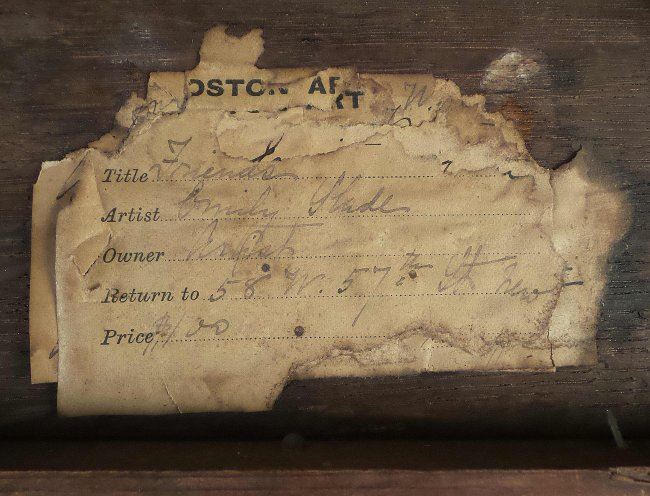 OSTON AR
RT
Title Friends
Artist Emily Slade
Owner Artist
Return to 58 W. 57th St New
Price $100